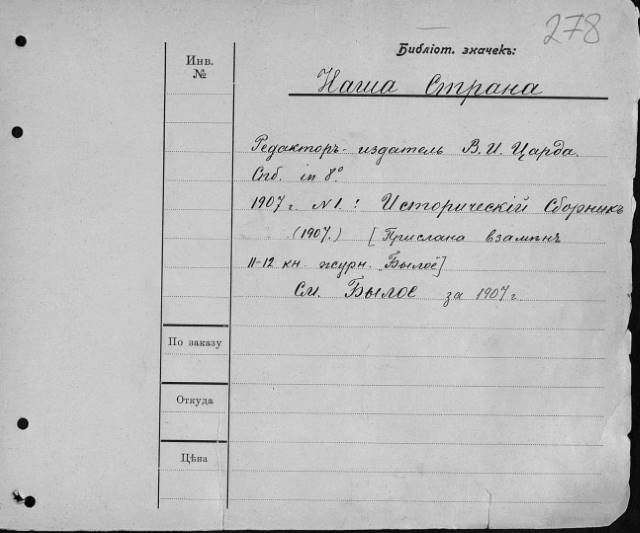 278
Библіот. значекъ:
Инв.
№
Наша Страна
Редакторъ-издатель В. И. Царда.
Спб. in 8°.
1907 г. N 1. : Историческій Сборникъ
(1907.) [Прислана взамѣнъ
11-12 кн. журн. „Былое]
См. Былое за 1907 г.
По заказу
Откуда
Цѣна